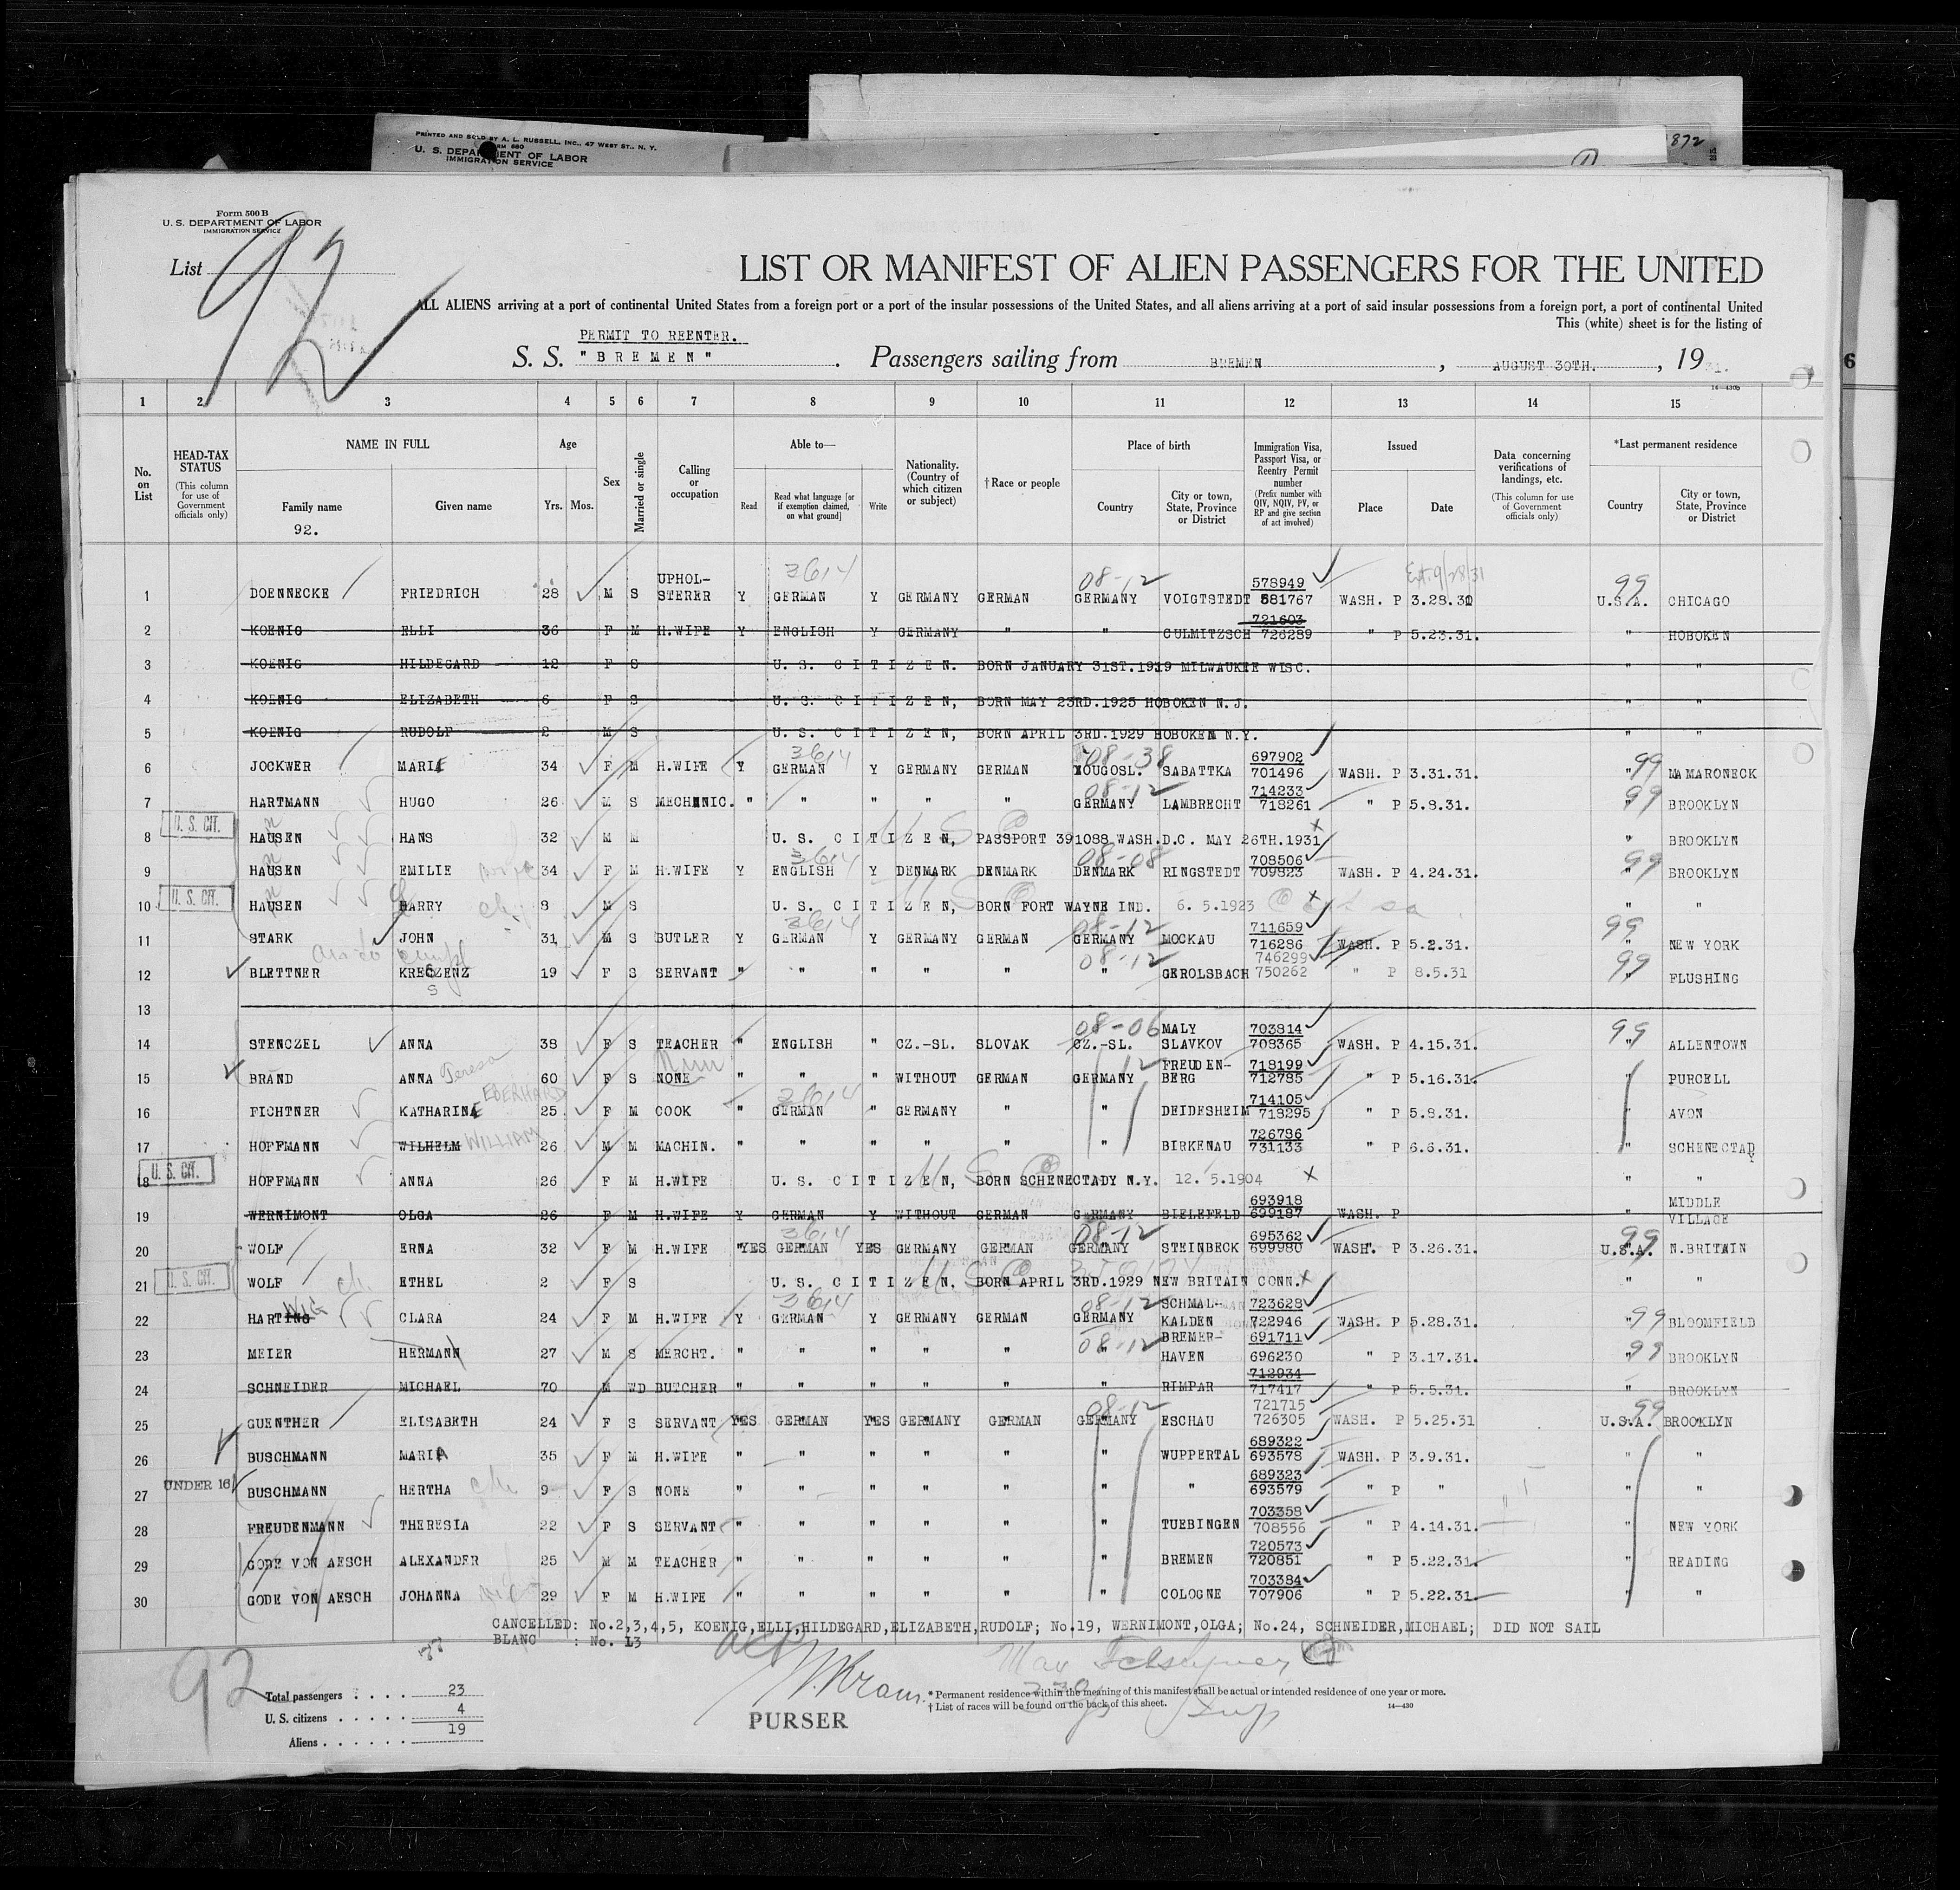 PRINTED AND SOLD BY A. L. RUSSELL, INC., 47 WEST ST., N. Y.
U. S. DEPARTMENT OF LABOR
IMMIGRATION SERVICE
872
Form 500 B
U. S. DEPARTMENT OF LABOR
IMMIGRATION SERVICE
List 92
LIST OR MANIFEST OF ALIEN PASSENGERS FOR THE UNITED
ALL ALIENS arriving at a port of continental United States from a foreign port or a port of the insular possessions of the United States, and all aliens arriving at a port of said insular possessions from a foreign port, a port of continental United
This (white) sheet is for the listing of
PERMIT TO REENTER.
S. S. "BREMEN". Passengers sailing from BREMEN, AUGUST 30TH., 1931.
6
1 2 3 4 5 6 7 8 9 10 11 12 13 14 15
No. on List
HEAD-TAX STATUS (This column for use of Government officials only)
NAME IN FULL Family name Given name
92.
Age Yrs. Mos.
Sex
Married or single
Calling or occupation
Able to— Read Read what language [or if exemption claimed, on what ground] Write
Nationality. (Country of which citizen or subject)
†Race or people
Place of birth Country City or town, State, Province or District
Immigration Visa, Passport Visa, or Reentry Permit number (Prefix number with QIV, NQIV, PV, or RP and give section of act involved)
Issued Place Date
Data concerning verifications of landings, etc. (This column for use of Government officials only)
*Last permanent residence Country City or town, State, Province or District
3614 08-12 Ext. 9/28/31 99
1 DOENNECKE FRIEDRICH 28 M S UPHOL-STERER Y GERMAN Y GERMANY GERMAN GERMANY VOIGTSTEDT 578949 581767 WASH. P 3.28.31 U.S.A. CHICAGO
2 KOENIG ELLI 36 F M H.WIFE Y ENGLISH Y GERMANY " " CULMITZSCH 721603 726289 " P 5.23.31. " HOBOKEN
3 KOENIG HILDEGARD 12 F S U. S. CITIZEN. BORN JANUARY 31ST.1919 MILWAUKEE WISC. " "
4 KOENIG ELIZABETH 6 F S U. S. CITIZEN, BORN MAY 23RD.1925 HOBOKEN N.J. " "
5 KOENIG RUDOLF 2 M S U. S. CITIZEN, BORN APRIL 3RD.1929 HOBOKEN N.Y. " "
3614 08-38 99
6 JOCKWER MARIE 34 F M H.WIFE Y GERMAN Y GERMANY GERMAN YOUGOSL. SABATTKA 697902 701496 WASH. P 3.31.31. " MAMARONECK
08-12 99
7 HARTMANN HUGO 26 M S MECHNIC. " " " " " GERMANY LAMBRECHT 714233 718261 " P 5.8.31. " BROOKLYN
U. S. CIT.
8 HAUSEN HANS 32 M M U. S. CITIZEN, PASSPORT 391088 WASH.D.C. MAY 26TH.1931 " BROOKLYN
3614 08-08 99
9 HAUSEN EMILIE 34 F M H.WIFE Y ENGLISH Y DENMARK DENMARK DENMARK RINGSTEDT 708506 709823 WASH. P 4.24.31. " BROOKLYN
U. S. CIT.
10 HAUSEN HARRY 8 M S U. S. CITIZEN, BORN FORT WAYNE IND. 6. 5.1923 " "
3614 08-12 99
11 STARK JOHN 31 M S BUTLER Y GERMAN Y GERMANY GERMAN GERMANY MOCKAU 711659 716286 WASH. P 5.2.31. " NEW YORK
08-12 99
12 BLETTNER KRESZENZ 19 F S SERVANT " " " " " " GEROLSBACH 746299 750262 " P 8.5.31 " FLUSHING
13
08-06 99
14 STENCZEL ANNA 38 F S TEACHER " ENGLISH " CZ.-SL. SLOVAK CZ.-SL. MALY SLAVKOV 703814 708365 WASH. P 4.15.31. " ALLENTOWN
15 BRAND ANNA Teresa 60 F S NONE Nun " " " WITHOUT GERMAN GERMANY FREUDEN-BERG 718199 712785 " P 5.16.31. " PURCELL
16 FICHTNER KATHARINE EBERHARD 25 F M COOK " GERMAN " GERMANY " " DEIDESHEIM 714105 718295 " P 5.8.31. " AVON
17 HOFFMANN WILHELM WILLIAM 26 M M MACHIN. " " " " " " BIRKENAU 726786 731133 " P 6.6.31. " SCHENECTADY
U. S. CIT.
18 HOFFMANN ANNA 26 F M H.WIFE U. S. CITIZEN, BORN SCHENECTADY N.Y. 12. 5.1904 " "
19 WERNIMONT OLGA 26 F M H.WIFE Y GERMAN Y WITHOUT GERMAN GERMANY BIELEFELD 693918 699187 WASH. P MIDDLE VILLAGE
3614 08-12 99
20 WOLF ERNA 32 F M H.WIFE YES GERMAN YES GERMANY GERMAN GERMANY STEINBECK 695362 699980 WASH. P 3.26.31. U.S.A. N.BRITAIN
U. S. CIT.
21 WOLF ch. ETHEL 2 F S U. S. CITIZEN, BORN APRIL 3RD.1929 NEW BRITAIN CONN. " "
3614 08-12 99
22 HARTING WIG CLARA 24 F M H.WIFE Y GERMAN Y GERMANY GERMAN GERMANY SCHMAL-KALDEN 723628 722946 WASH. P 5.28.31. " BLOOMFIELD
08-12 99
23 MEIER HERMANN 27 M S MERCHT. " " " " " " BREMER-HAVEN 691711 696230 " P 3.17.31. " BROOKLYN
24 SCHNEIDER MICHAEL 70 M WD BUTCHER " " " " " " RIMPAR 712934 717417 " P 5.5.31. " BROOKLYN
08-12 99
25 GUENTHER ELISABETH 24 F S SERVANT YES GERMAN YES GERMANY GERMAN GERMANY ESCHAU 721715 726305 WASH. P 5.25.31 U.S.A. BROOKLYN
26 BUSCHMANN MARIA 35 F M H.WIFE " " " " " " WUPPERTAL 689322 693578 WASH. P 3.9.31. " "
UNDER 16
27 BUSCHMANN HERTHA ch. 9 F S NONE " " " " " " " 689323 693579 " P " " "
28 FREUDENMANN THERESIA 22 F S SERVANT " " " " " " TUEBINGEN 703358 708556 " P 4.14.31. " NEW YORK
29 GODE VON AESCH ALEXANDER 25 M M TEACHER " " " " " " BREMEN 720573 720851 " P 5.22.31. " READING
30 GODE VON AESCH JOHANNA 29 F M H.WIFE " " " " " " COLOGNE 703384 707906 " P 5.22.31. " "
CANCELLED: No.2,3,4,5, KOENIG,ELLI,HILDEGARD,ELIZABETH,RUDOLF; No.19, WERNIMONT,OLGA; No.24, SCHNEIDER,MICHAEL; DID NOT SAIL
BLANC : No. 13
92
Total passengers . . . . 23
U. S. citizens . . . . . 4
Aliens . . . . . . 19
PURSER
* Permanent residence within the meaning of this manifest shall be actual or intended residence of one year or more.
† List of races will be found on the back of this sheet.
14—430